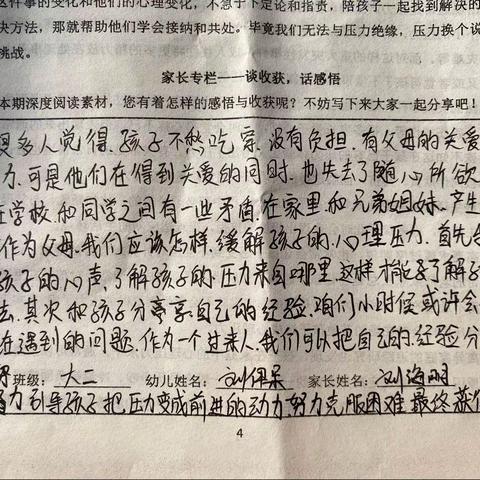 这件事的变化和他们的心理变化，不急于下定论和指责，陪孩子一起找到解决的
决方法，那就帮助他们学会接纳和共处。毕竟我们无法与压力绝缘，压力换个说
挑战。
家长专栏——谈收获，话感悟
本期深度阅读素材，您有着怎样的感悟与收获呢？不妨写下来大家一起分享吧！
很多人觉得,孩子不愁吃穿.没有负担.有父母的关爱
力.可是他们在得到关爱的同时.也失去了随心所欲
在学校和同学之间有一些矛盾.在家里和兄弟姐妹.产生
作为父母.我们应该怎样.缓解孩子的.心理压力.首先
孩子的心声.了解孩子的压力来自哪里.这样才能了解
去.其次和孩子分享自己的经验.咱们小时候或许会
在遇到的问题.作为一个过来人.我们可以把自己的经验分
班级：大二 幼儿姓名：刘伊 家长姓名：刘海丽
力引导孩子把压力变成前进的动力努力克服困难.最终获
4